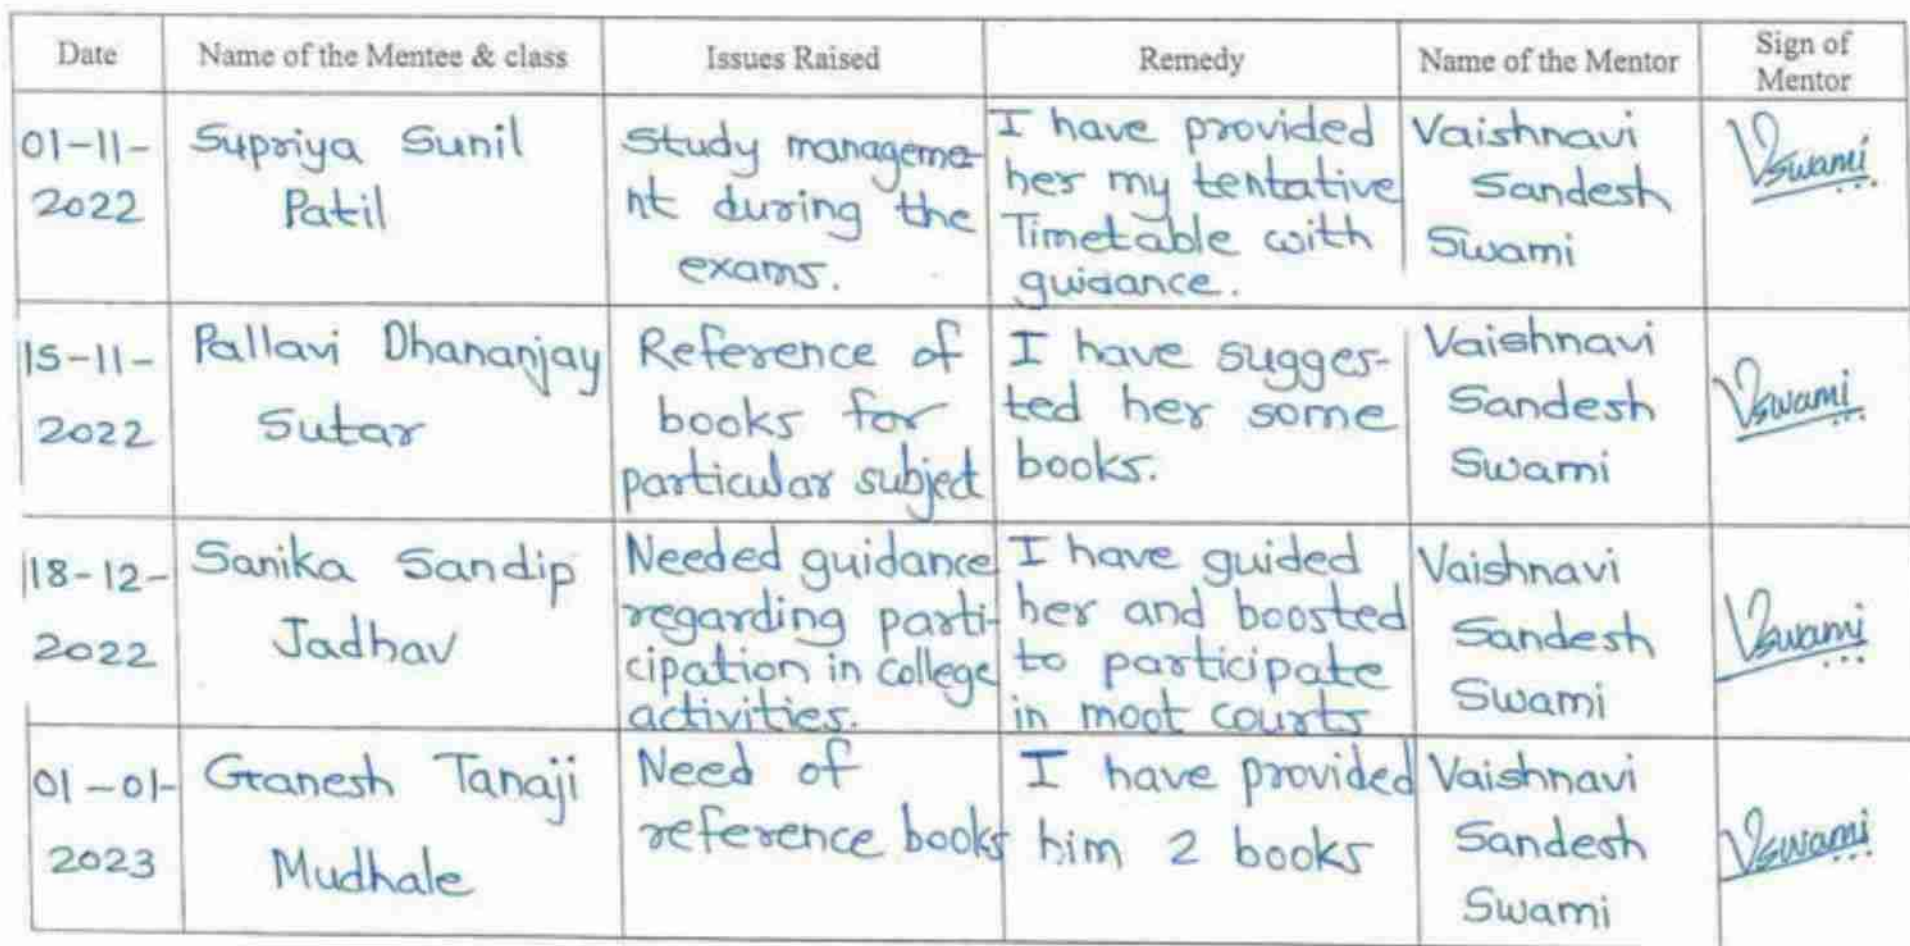 Date Name of the Mentee & class Issues Raised Remedy Name of the Mentor Sign of
Mentor
01-11-
2022
Supriya Sunil
Patil
Study manageme-
nt during the
exams.
I have provided
her my tentative
Timetable with
guidance.
Vaishnavi
Sandesh
Swami
VSwami
15-11-
2022
Pallavi Dhananjay
Sutar
Reference of
books for
particular subject
I have sugges-
ted her some
books.
Vaishnavi
Sandesh
Swami
VSwami
18-12-
2022
Sanika Sandip
Jadhav
Needed guidance
regarding parti-
cipation in college
activities.
I have guided
her and boosted
to participate
in moot courts
Vaishnavi
Sandesh
Swami
VSwami
01-01-
2023
Ganesh Tanaji
Mudhale
Need of
reference books
I have provided
him 2 books
Vaishnavi
Sandesh
Swami
VSwami